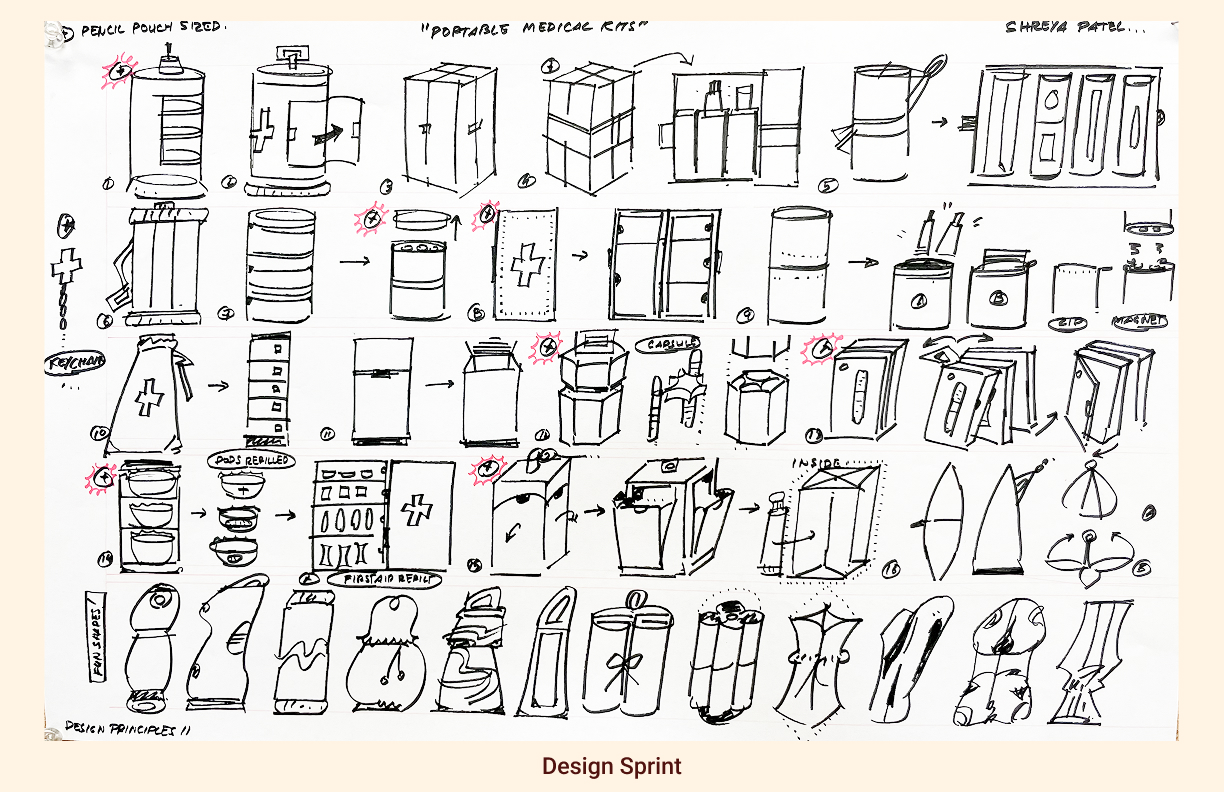 PENCIL POUCH SIZED.
"PORTABLE MEDICAL KITS"
SHREYA PATEL...
1
2
3
4
5
6
7
8
9
A
B
ZIP
MAGNET
KEYCHAIN
10
11
12
CAPSULE
13
14
PODS REFILLED
FIRST AID REFILL
15
INSIDE
16
A
B
FUN SHAPES!
DESIGN PRINCIPLES II
Design Sprint